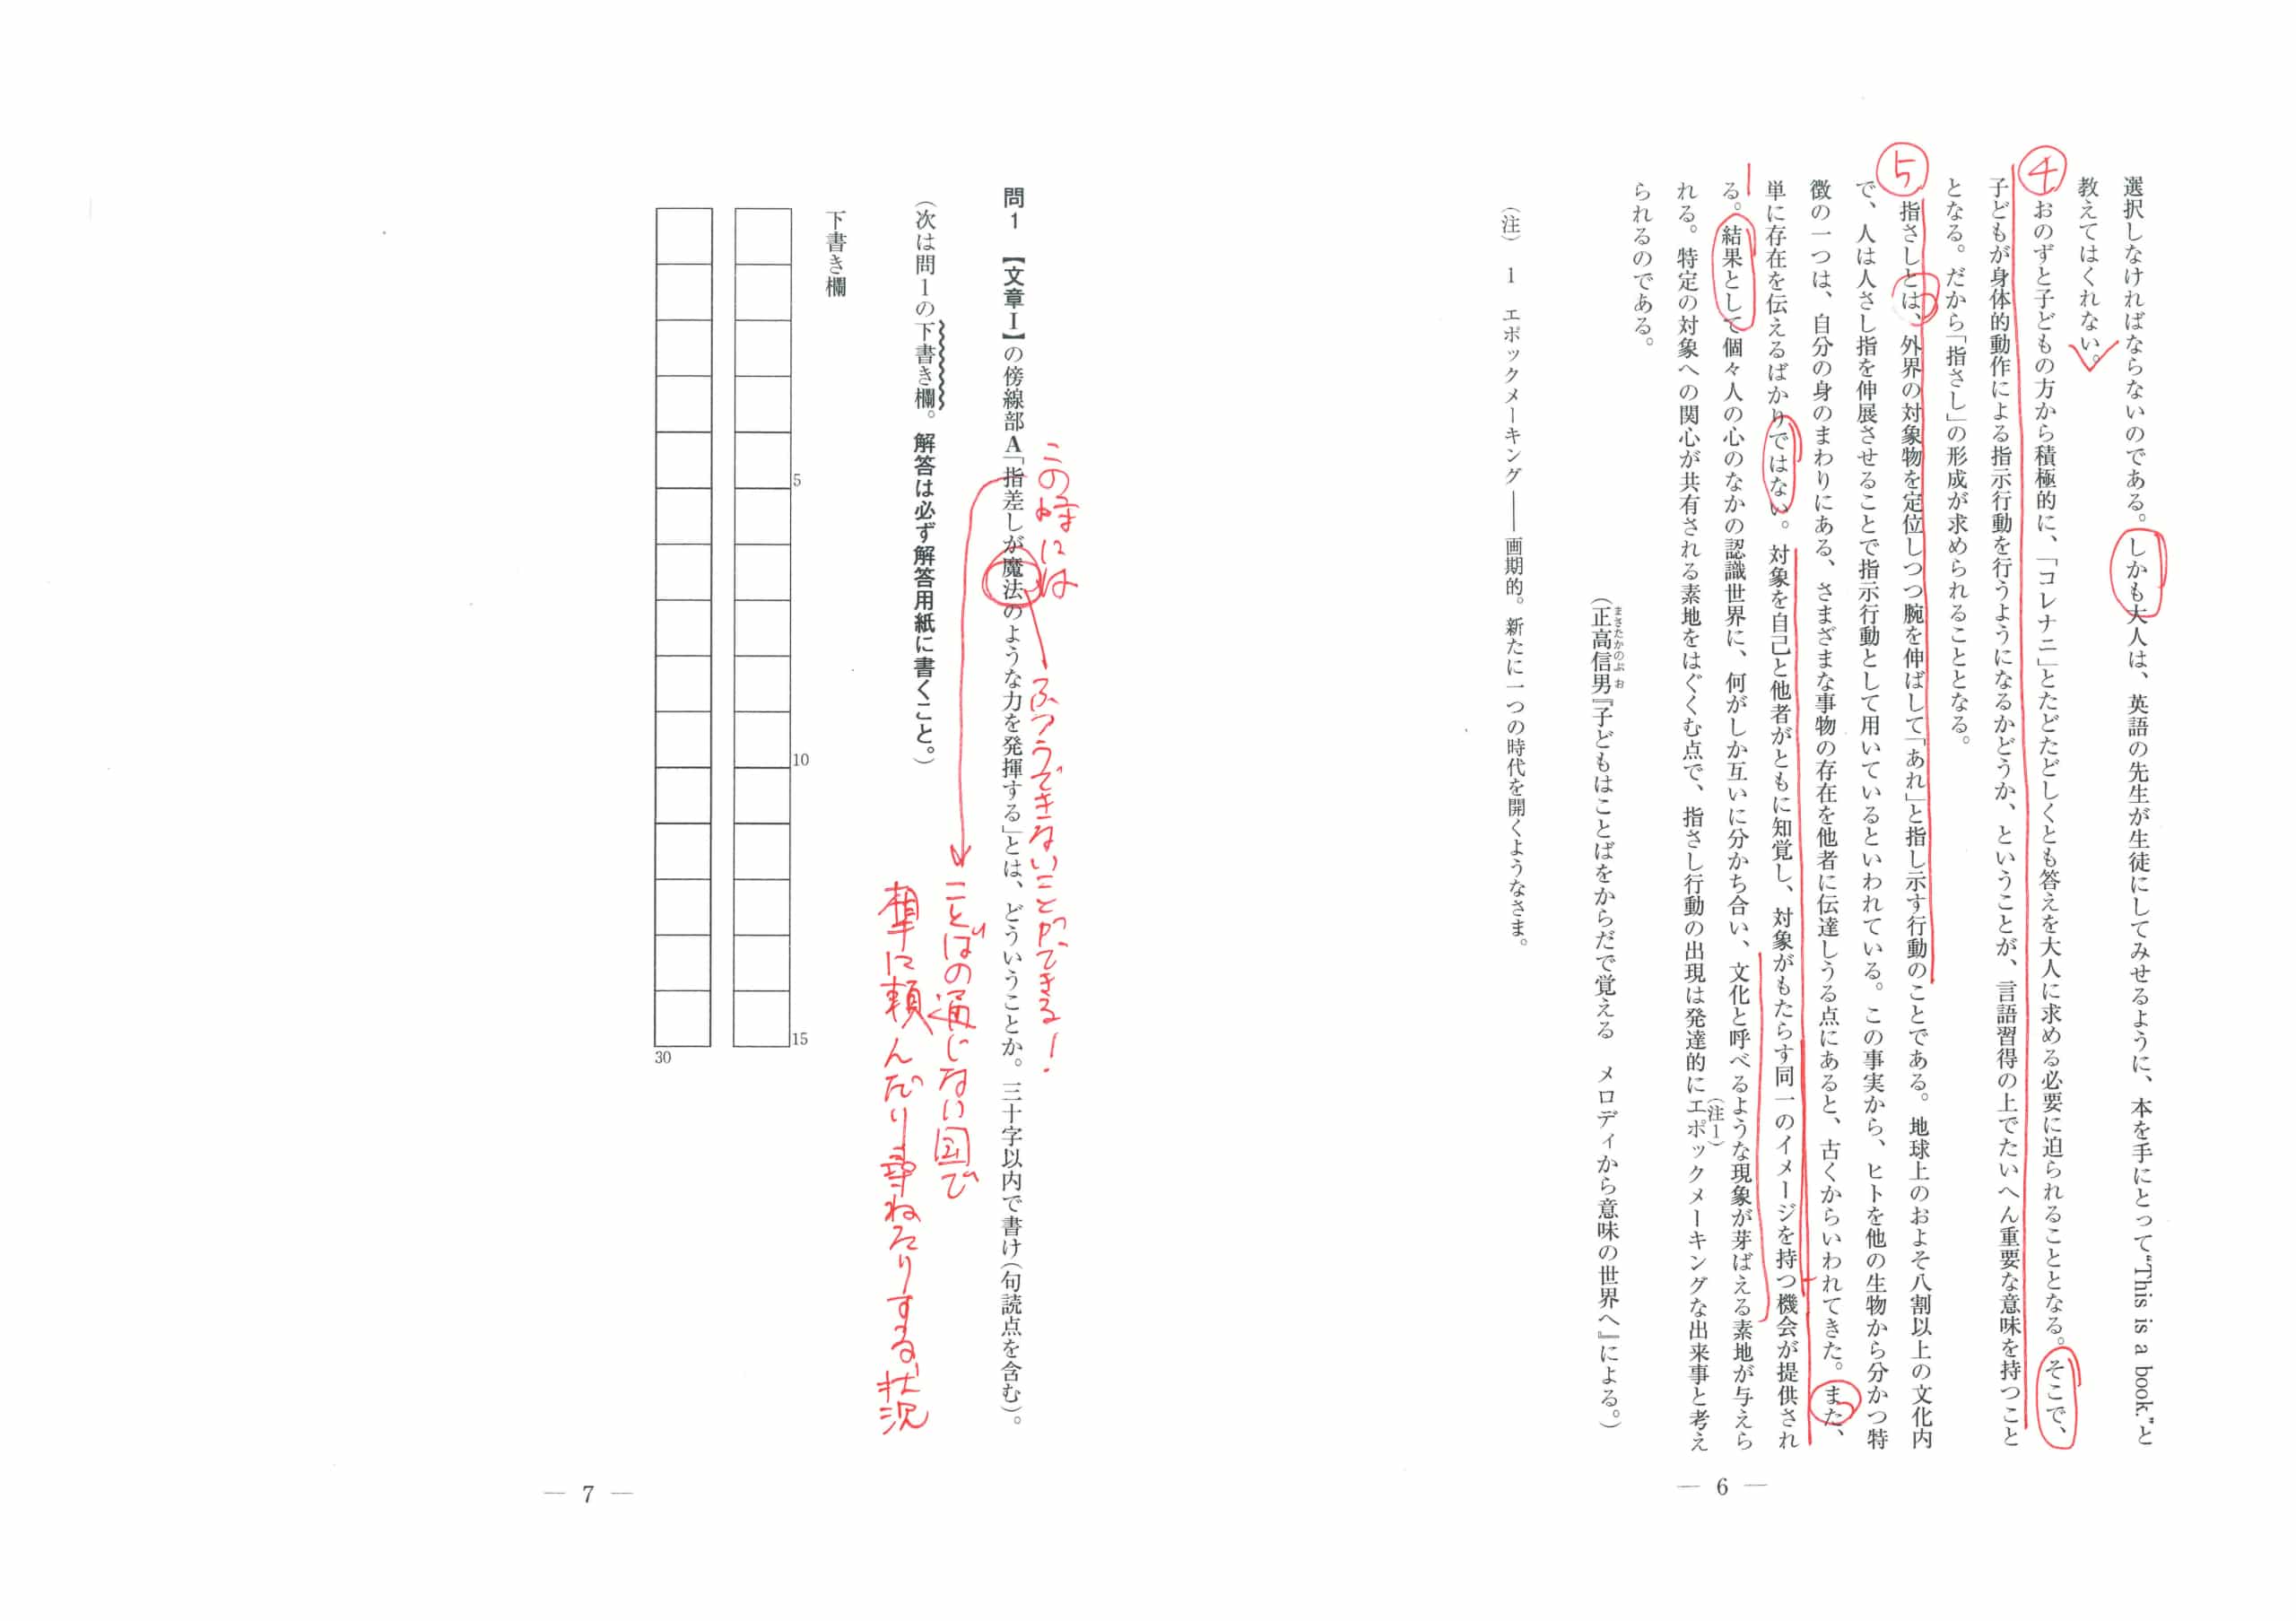 選択しなければならないのである。しかも大人は、英語の先生が生徒にしてみせるように、本を手にとって“This is a book.”と
教えてはくれない。
④
おのずと子どもの方から積極的に、「コレナニ」とたどたどしくとも答えを大人に求める必要に迫られることとなる。そこで、
子どもが身体的動作による指示行動を行うようになるかどうか、ということが、言語習得の上でたいへん重要な意味を持つこと
となる。だから「指さし」の形成が求められることとなる。
⑤
指さしとは、外界の対象物を定位しつつ腕を伸ばして「あれ」と指し示す行動のことである。地球上のおよそ八割以上の文化内
で、人は人さし指を伸展させることで指示行動として用いているといわれている。この事実から、ヒトを他の生物から分かつ特
徴の一つは、自分の身のまわりにある、さまざまな事物の存在を他者に伝達しうる点にあると、古くからいわれてきた。また、
単に存在を伝えるばかりではない。対象を自己と他者がともに知覚し、対象がもたらす同一のイメージを持つ機会が提供され
る。結果として個々人の心のなかの認識世界に、何がしか互いに分かち合い、文化と呼べるような現象が芽ばえる素地が与えら
れる。特定の対象への関心が共有される素地をはぐくむ点で、指さし行動の出現は発達的にエポックメーキングな出来事と考え
(注1)
られるのである。
(正高信男『子どもはことばをからだで覚える　メロディから意味の世界へ』による。)
まさたかのぶお
(注)　1　エポックメーキング——画期的。新たに一つの時代を開くようなさま。
— 6 —
この時には
ふつうできないことができる！
問1　【文章Ⅰ】の傍線部A「指差しが魔法のような力を発揮する」とは、どういうことか。三十字以内で書け(句読点を含む)。
ことばの通じない国で
相手に頼んだり尋ねたりする状況
(次は問1の下書き欄。解答は必ず解答用紙に書くこと。)
下書き欄
5
10
15
30
— 7 —